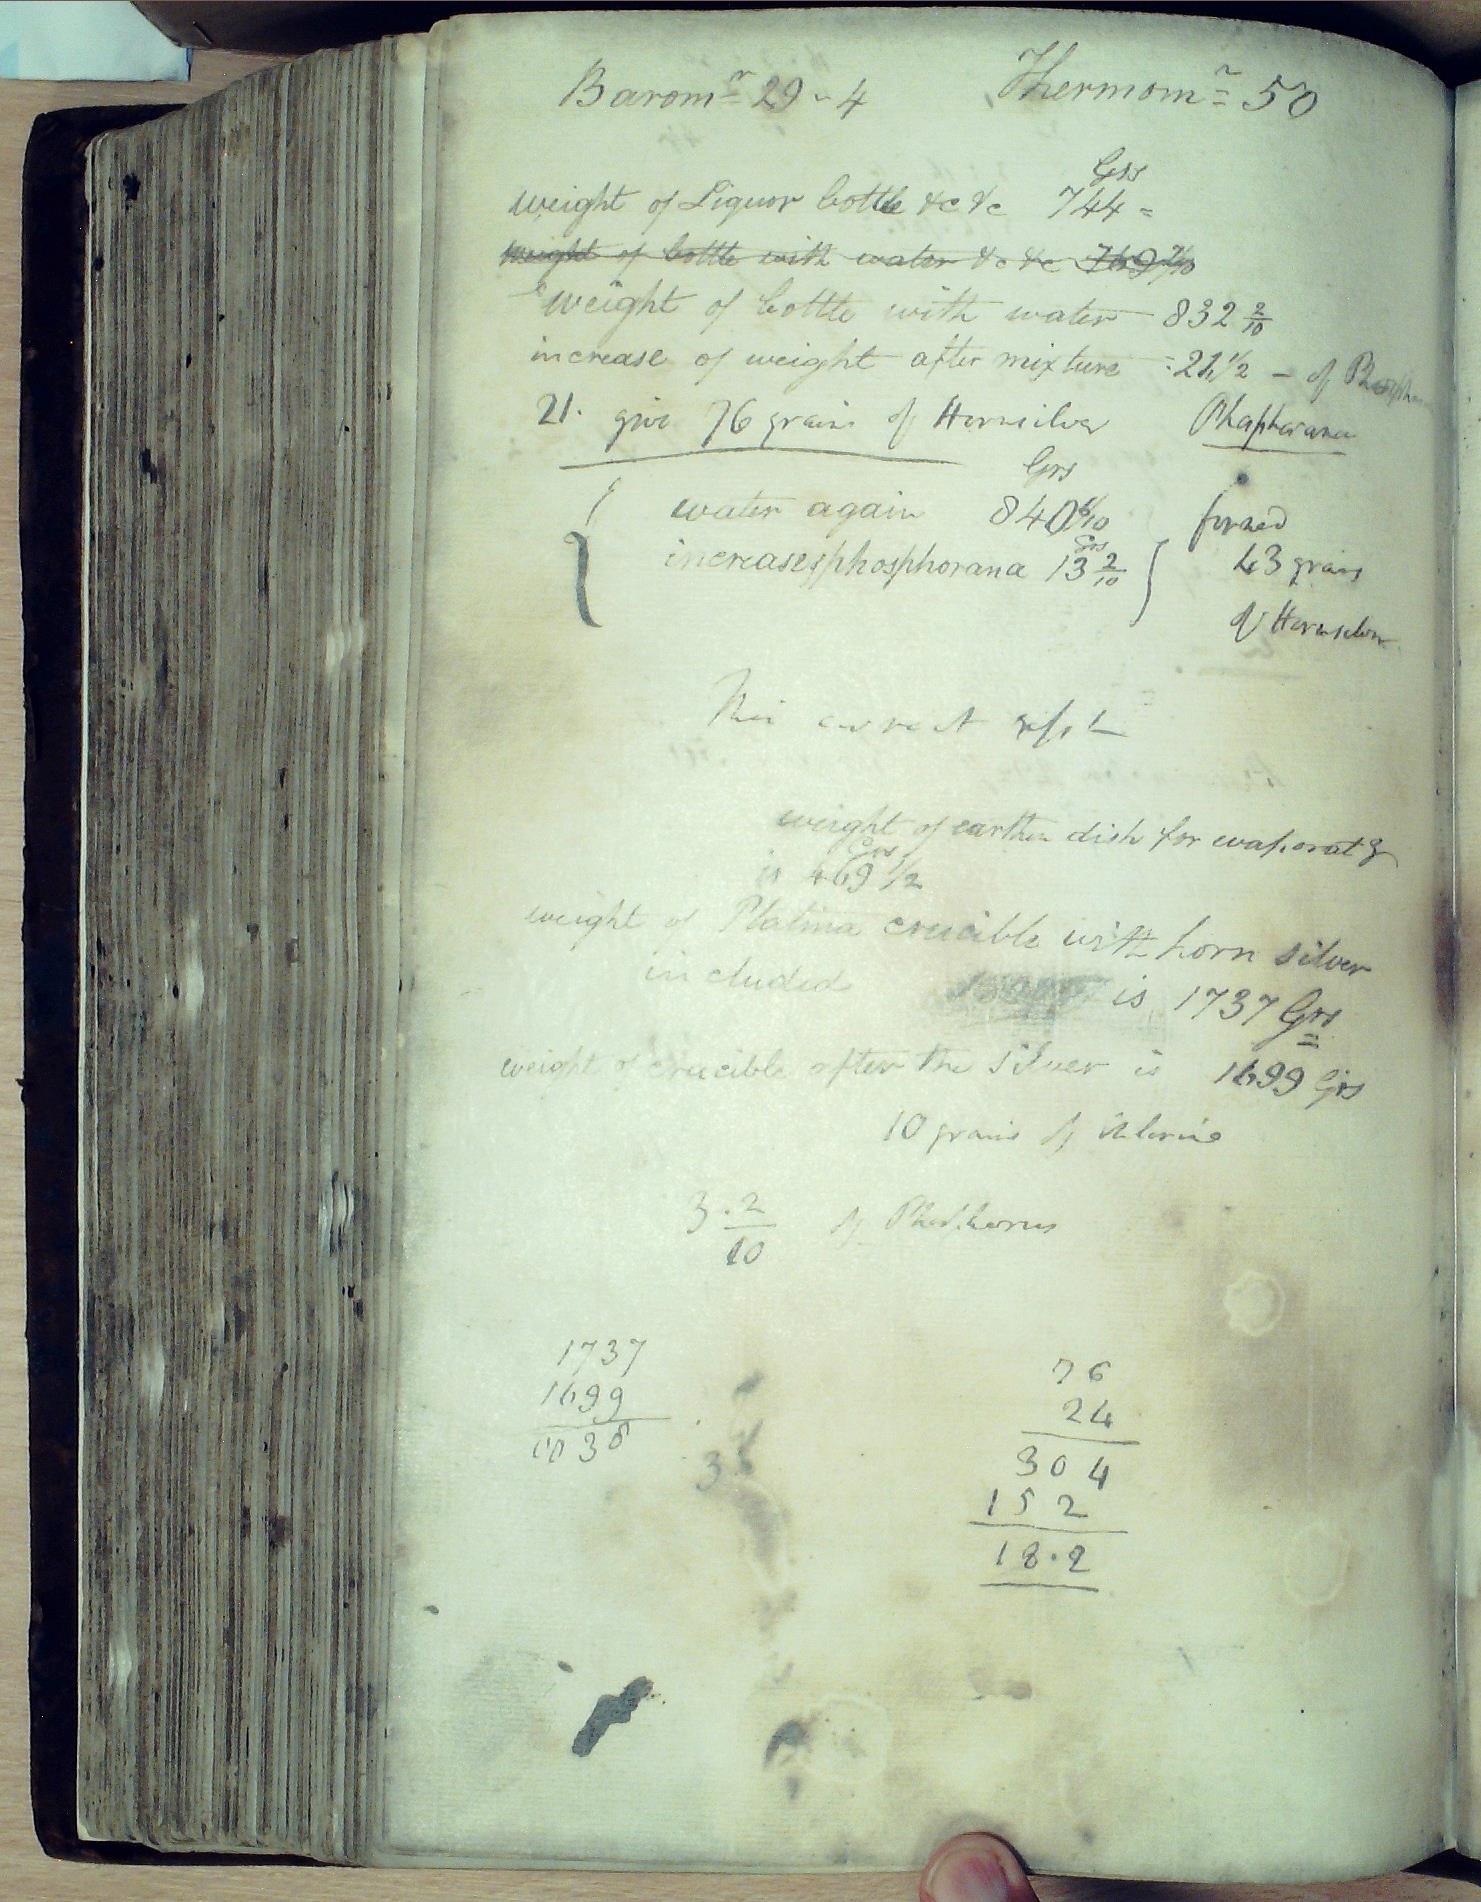 Barom.r 29 - 4 Thermom.r 50
Grs
weight of Liquor bottle &c &c 744 =
weight of bottle with water &c &c 769 7/10
weight of bottle with water 832 2/10
increase of weight after mixture = 21 1/2 - of
21. give 76 grains of Hornsilver Phosphorana
Grs
water again 840 6/10 formed
Grs
increase phosphorana 13 2/10 43 grains
of Hornsilver
This correct
weight of earthen dish for evaporatg
Grs
is 469 1/2
weight of Platina crucible with horn silver
included is 1737 Grs
weight of crucible after the silver is 1699 Grs
10 grains of chlorine
3.2/10 of Phosphorus
1737
1699
0038
38
76
24
304
152
18.2